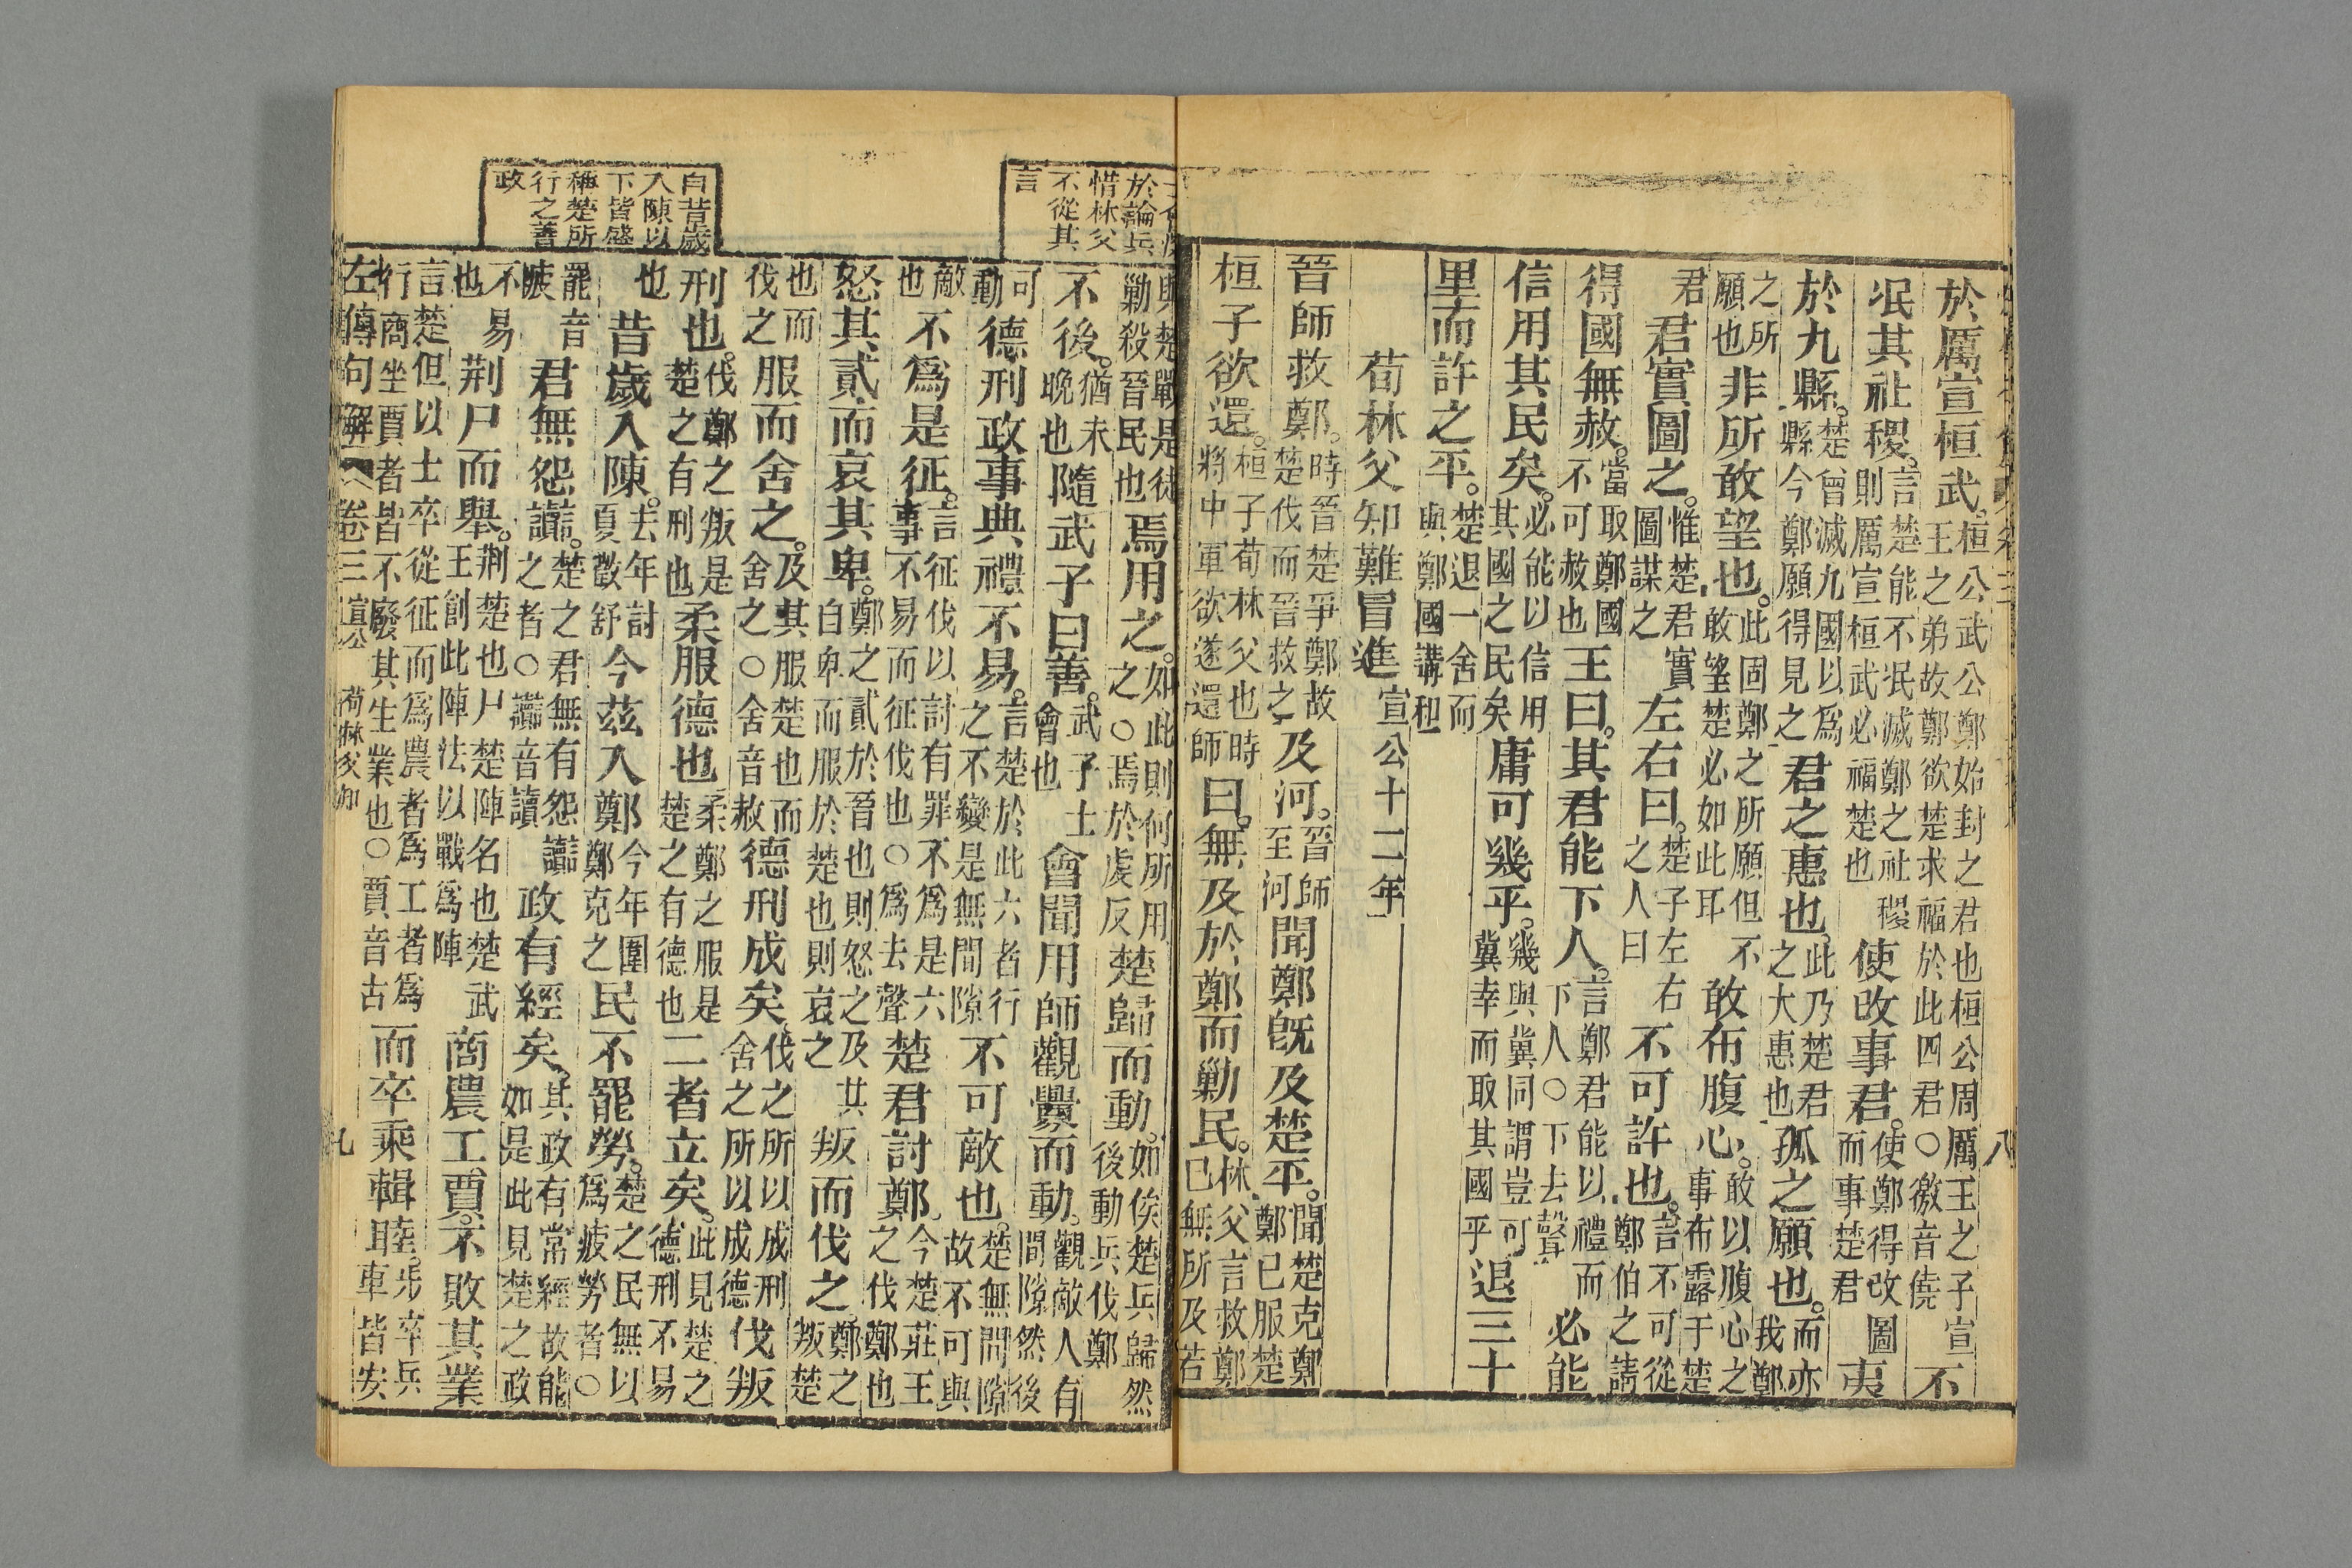 於厲宣桓武。桓公武公鄭始封之君也桓公周厲王之子宣王之弟故鄭欲楚求福於此四君○徼音僥不
泯其社稷。言楚能不泯滅鄭之社稷則厲宣桓武必福楚也使改事君。使鄭得改圖而事楚君夷
於九縣。楚曾滅九國以爲縣今鄭願得見之君之惠也。此乃楚君之大惠也孤之願也。而亦我鄭
之所願也非所敢望也。此固鄭之所願但不敢望楚必如此耳敢布腹心。敢以腹心之事布露于楚
君君實圖之。惟楚君實圖謀之左右曰。楚子左右之人曰不可許也。言不可從鄭伯之請
得國無赦。當取鄭國不可赦也王曰。其君能下人。言鄭君能以禮而下人○下去聲必能
信用其民矣。必能以信用其國之民矣庸可幾乎。幾與冀同謂豈可冀幸而取其國乎退三十
里而許之平。楚退一舍而與鄭國講和
荀林父知難冒進 宣公十二年
晉師救鄭。時晉楚爭鄭故楚伐而晉救之及河。晉師至河聞鄭旣及楚平。聞楚克鄭鄭已服楚
桓子欲還。桓子荀林父也時將中軍欲遂還師曰。無及於鄭而勦民。林父言救鄭已無所及若
八
於論兵
惜林父
不從其
言
與楚戰是徒勦殺晉民也焉用之。如此則何所用之○焉於虔反楚歸而動。如俟楚兵歸然後動兵伐鄭
不後。猶未晚也隨武子曰善。武子士會也會聞用師觀釁而動。觀敵人有間隙然後
可動德刑政事典禮不易。言楚於此六者行之不變是無間隙不可敵也。楚無間隙故不可與
敵也不爲是征。言征伐以討有罪不爲是六事不易而征伐也○爲去聲楚君討鄭。今楚莊王之伐鄭也
怒其貳而哀其卑。鄭之貳於晉也則怒之及其白卑而服於楚也則哀之叛而伐之。鄭之叛楚
也而伐之服而舍之。及其服楚也而舍之○舍音赦德刑成矣。伐之所以成刑舍之所以成德伐叛
刑也。伐鄭之叛是楚之有刑也柔服德也。柔鄭之服是楚之有德也二者立矣。此見楚之德刑不易
也昔歲入陳。去年討夏徵舒今茲入鄭今年圍鄭克之民不罷勞。楚之民無以爲疲勞者○
罷音疲君無怨讟。楚之君無有怨讟之者○讟音讀政有經矣。其政有常經故能如是此見楚之政
不易也荆尸而舉。荆楚也尸楚陣名也楚武王創此陣法以戰爲陣商農工賈。不敗其業
言楚但以士卒從征而爲農者爲工者爲行商坐賈者皆不廢其生業也○賈音古而卒乘輯睦。步卒兵車皆安
自昔歲
入陳以
下皆盛
稱楚所
行之善
政
左傳句解 卷三 宣公 荀林父知 九